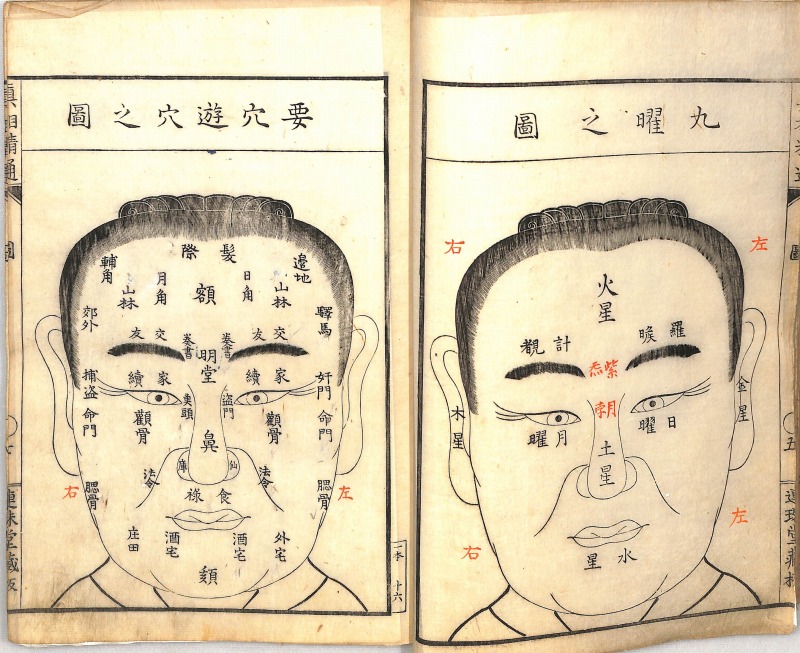 九曜之圖
右
左
火星
羅睺
計
紫炁
金星
月孛
日曜
月曜
木星
土星
左
右
水星
圖
五
要穴遊穴之圖
髮際
邊地
輔角
日角
額
月角
山林
山林
驛馬
郊外
交友
交友
奏書
奏書
明堂
家續
家續
奸門
捕盜
盜門
命門
命門
顴骨
顴骨
鼻
法令
法令
食祿
腮骨
腮骨
左
右
外宅
酒宅
酒宅
庄田
圖
連珠堂藏板
十六